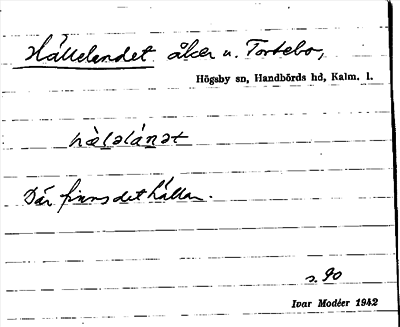 Hällelandet åker u. Torkebo,
Högsby sn, Handbörds hd, Kalm. l.
hàlalánat
Där finns det hällar.
s. 90
Ivar Modéer 1942